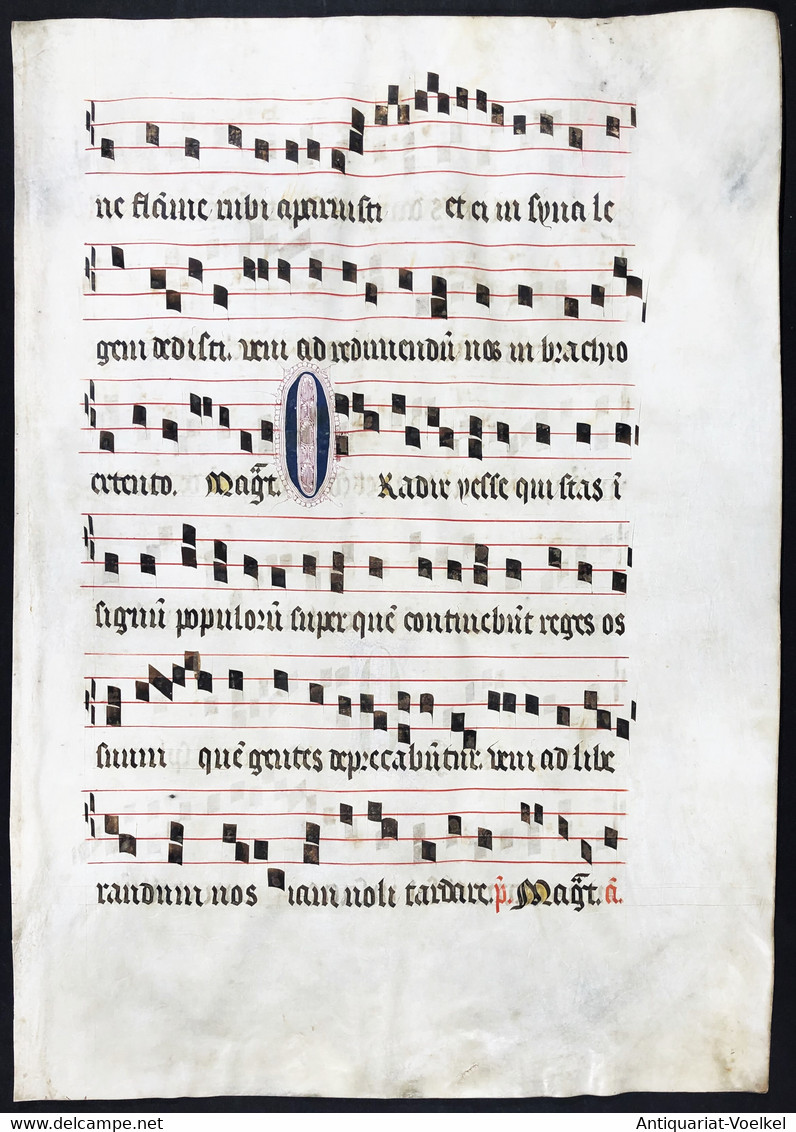 ne flāme rubi aparuisti et ei in syna le
gem dedisti. veni ad redimendū nos in brachio
extento. Mag̃t. O Radix yesse qui stas ī
signū populorū super quē continebūt reges os
suum quē gentes deprecabūtur. veni ad libe
randum nos iam noli tardare. p̄. Mag̃t. ā.
Antiquariat-Voelkel
www.delcampe.net